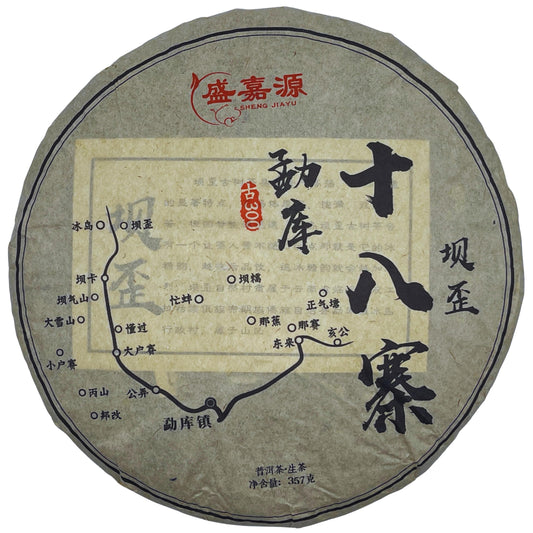 盛嘉源
SHENG JIAYU
十八寨
勐库
古300
坝歪
冰岛
坝歪
坝卡
坝糯
坝气山
忙蚌
正气塘
大雪山
懂过
那蕉
那赛
亥公
东来
小户赛
大户赛
丙山
公弄
邦改
勐库镇
坝歪
普洱茶·生茶
净含量:357克